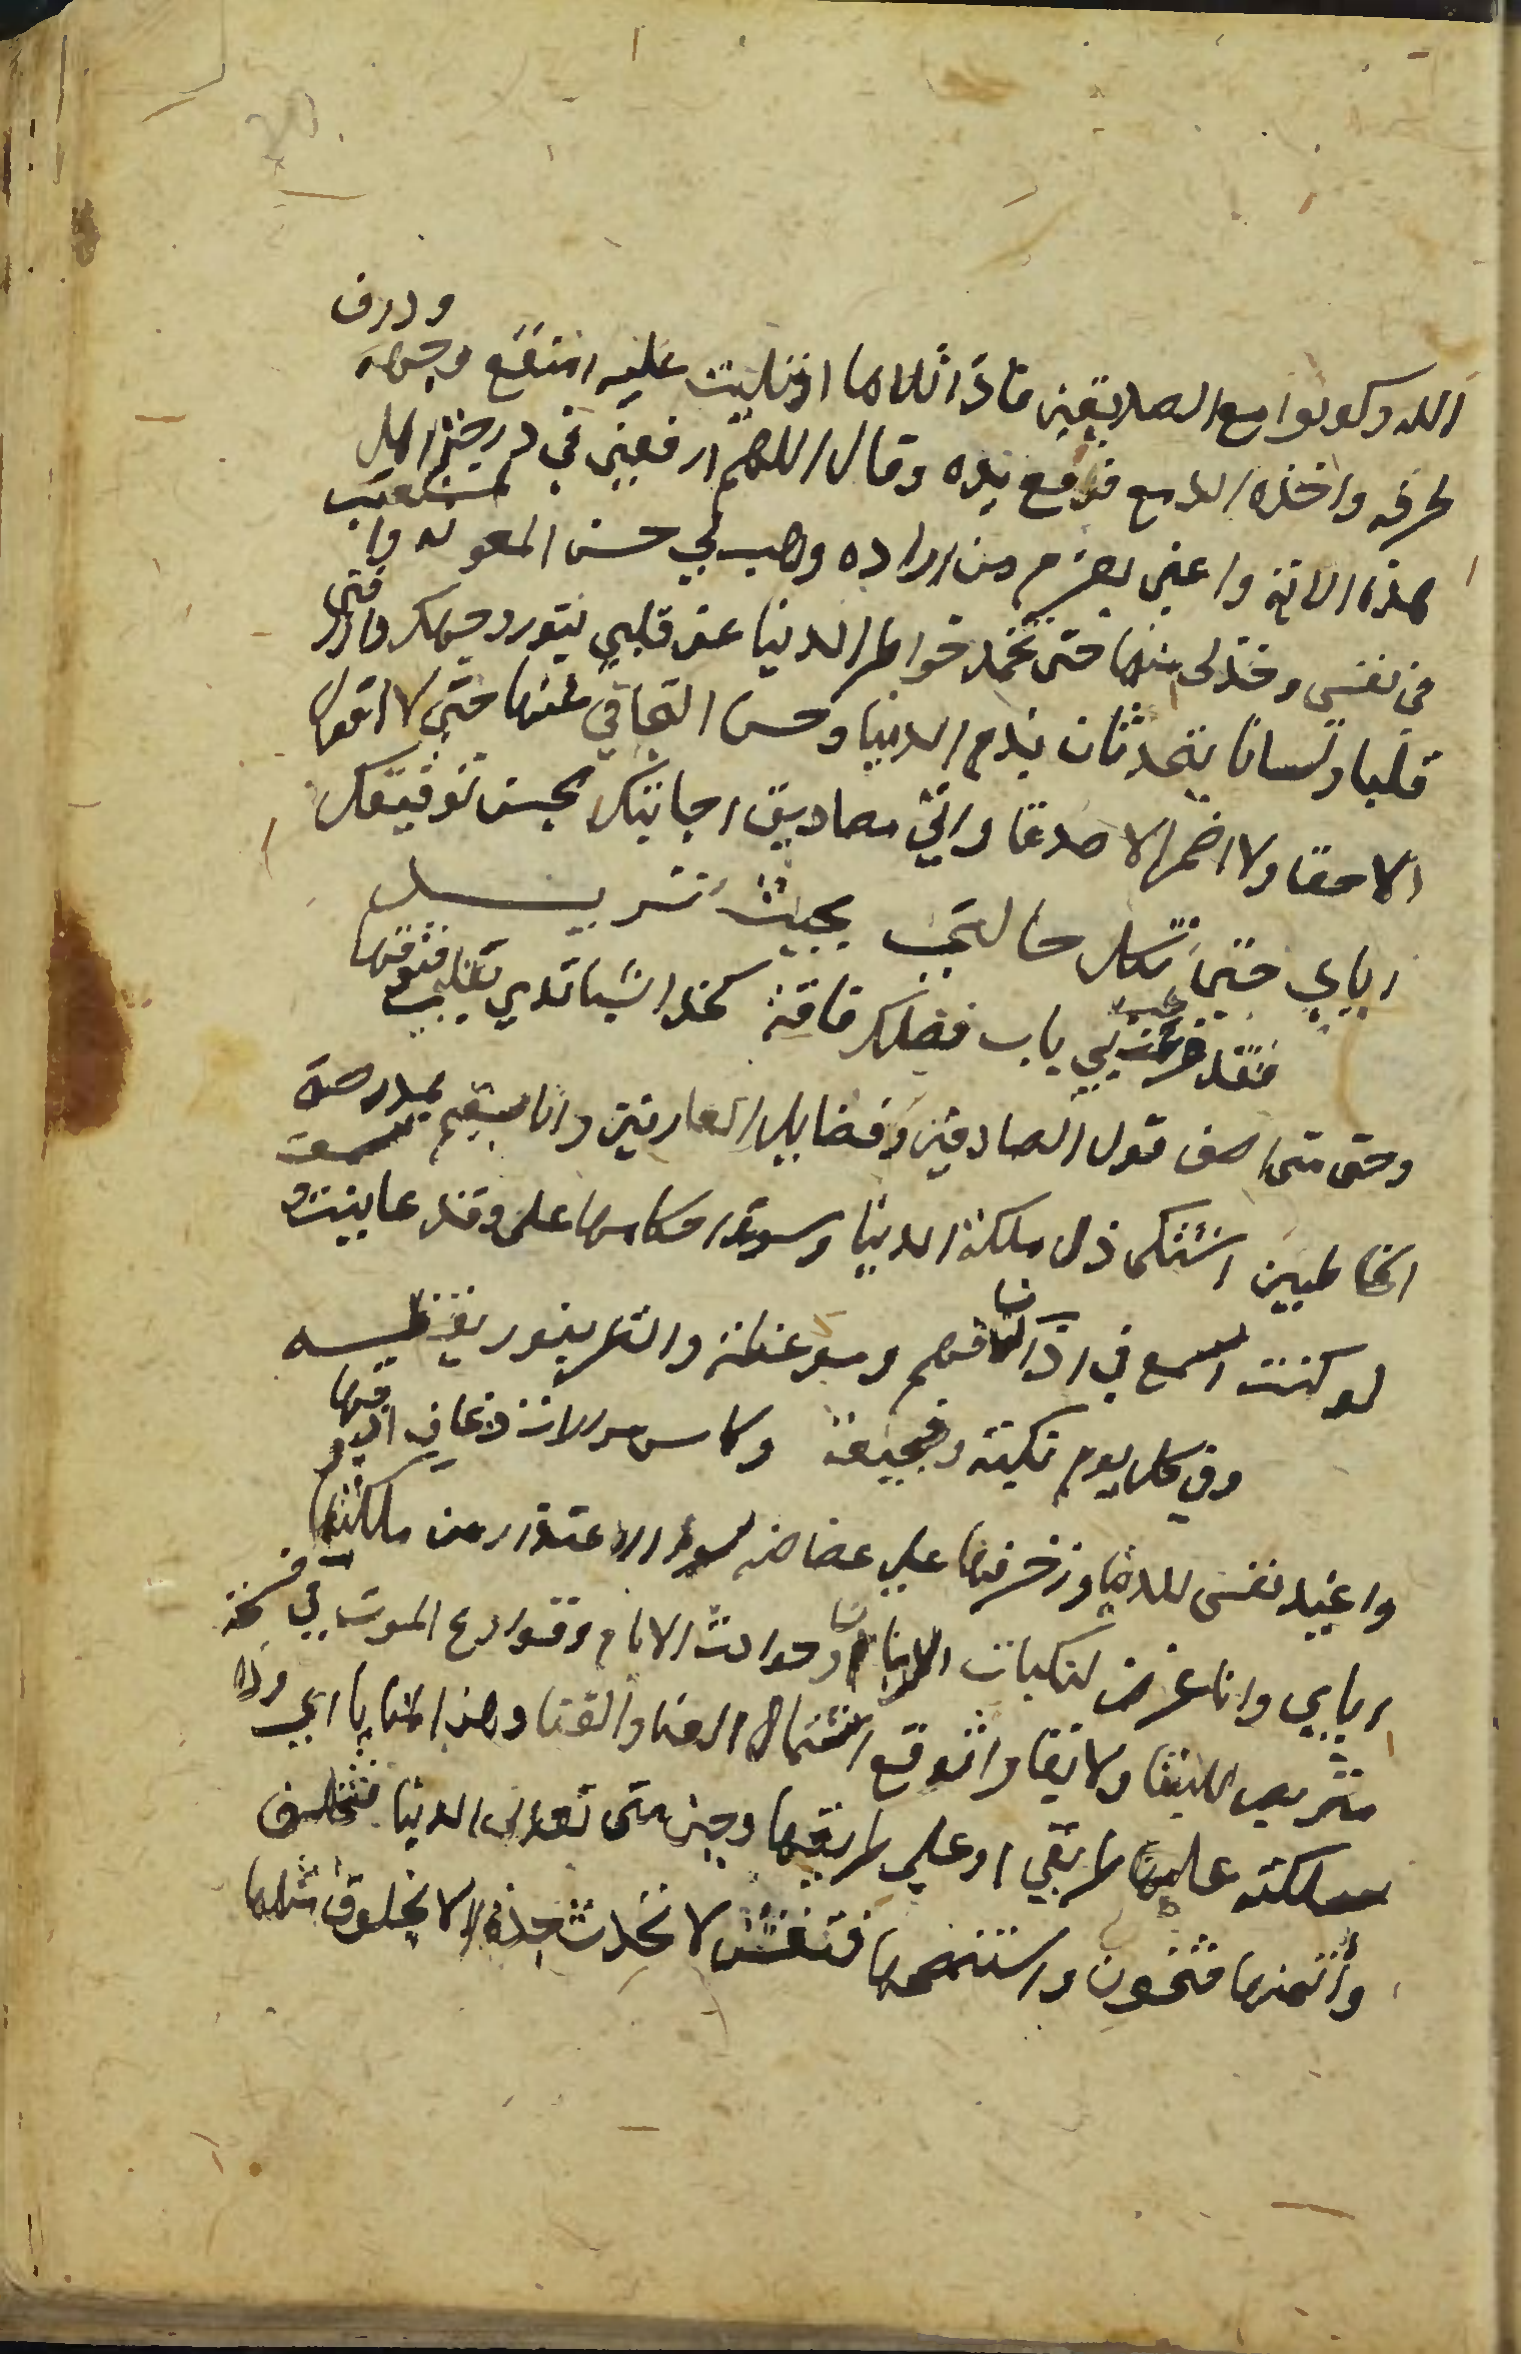 الله وكونوا مع الصديقين فاذا تلاها او تليت عليه انتقع وجهه وذرف
طرفه واخذه الدمع فرفع يده وقال اللهم ارفعني في درجة اهل
هذه الاية واعني بعزم من اراده وهب لي حسن المعونة
في نفسي وخذلي منها حتى تخمد خواطر الدنيا عن قلبي بنور وجهك وارزقني
قلبا ولسانا يتحدثان بذم الدنيا وحسن التجافي عنها حتى لا اقول
الا حقا ولا اضمر الا صدقا وارني مصاديق اجابتك بحسن توفيقك
اياي حتى تكل حالتي بحيث تريد
فقد قرعت بي باب فضلك فاقة كحد السنا تدي بقلبي فتوقها
وحتى متى اصف قول الصادقين وفضايل العارفين وانا مقيم بمدرجة
الخاطيين اشتكي ذل ملكة الدنيا وسوء احكامها علي وقد عاينت و
لو كنت اسمع في اذن فهم وموعظة وانظر بنور يقظه
وفي كل يوم نكبة وفجيعة وكاس مرارات ذعاف اذوقها
واعبد نفسي للدنيا وزخرفها علي غضاضة سوء الاعتذار من ملكتها
اياي وانا غرض لنكبات الزمان وحوادث الايام وقوارع الموت في فسحة
متربص للبقا ولا بقا واتوقع اشتمال الفنا والقنا وهذا المنايا اي واد
سلكته عليها طريقي او علي طريقها وحين متى تعدني الدنيا فتخلف
وأتمنها فتخون واستنصحها فتغش لا تحدث جدة الا بخلوق مثلها